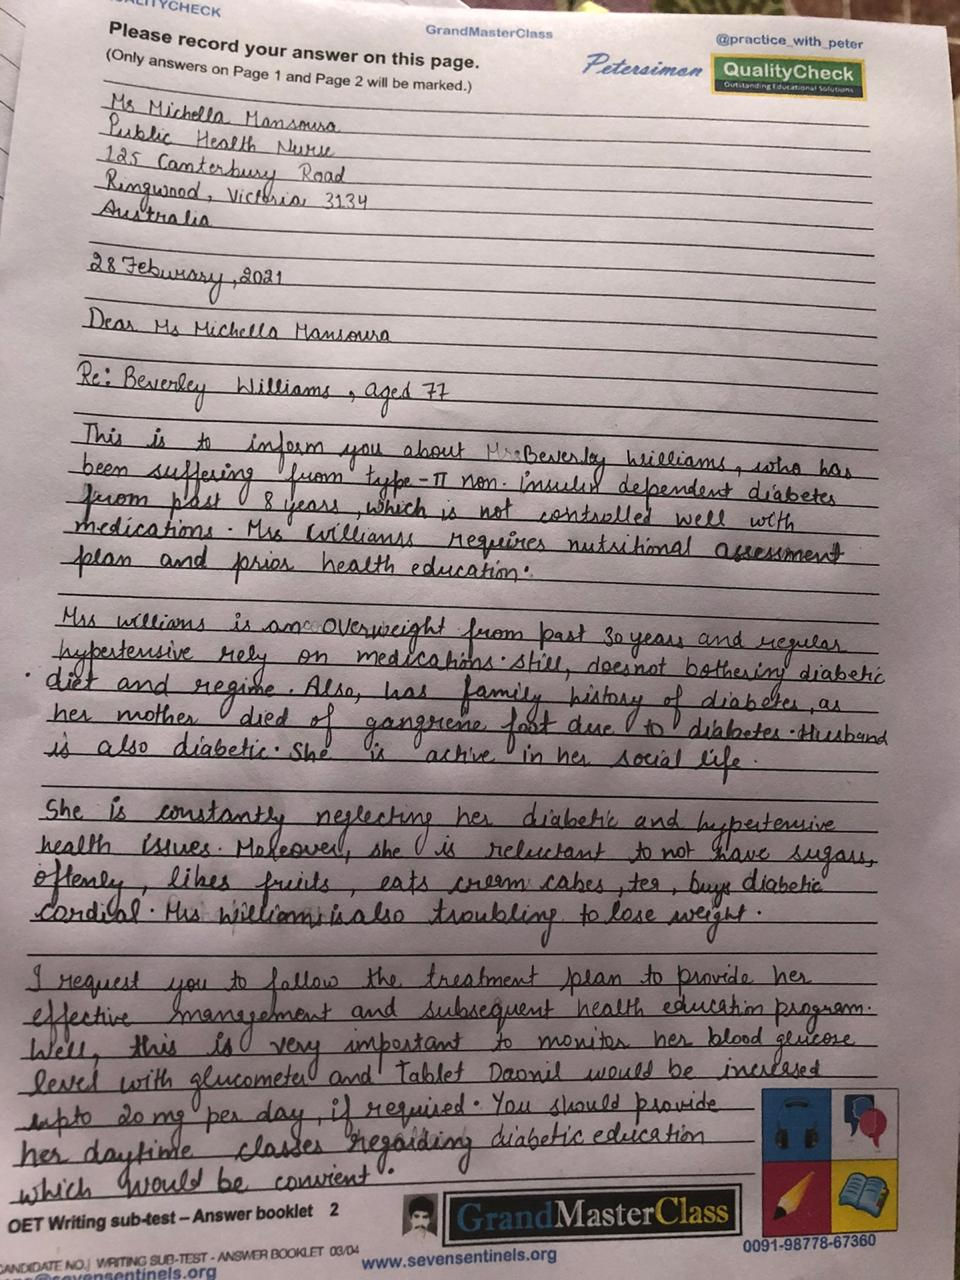 QUALITYCHECK
GrandMasterClass
@practice_with_peter
Please record your answer on this page.
(Only answers on Page 1 and Page 2 will be marked.)
Petersimon
QualityCheck
Outstanding Educational Solutions
Ms Michella Mansoura
Public Health Nurse
125 Canterbury Road
Ringwood, Victoria 3134
Australia
28 Feburary, 2021
Dear Ms Michella Mansoura
Re: Beverley Williams, aged 77
This is to inform you about Mrs Beverley Williams, who has
been suffering from type-II non-insulin dependent diabetes
from past 8 years, which is not controlled well with
medications. Mrs Willianss requires nutritional assessment
plan and prior health education.
Mrs Williams is an overweight from past 30 years and regular
hypertensive rely on medications. Still, doesnot bothering diabetic
diet and regime. Also, has family history of diabetes, as
her mother died of gangrene foot due to diabetes. Husband
is also diabetic. She is active in her social life.
She is constantly neglecting her diabetic and hypertensive
health issues. Moreover, she is reluctant to not have sugars,
oftenly, likes fruits, eats cream cakes, tea, buys diabetic
cordial. Mrs Williams is also troubling to lose weight.
I request you to follow the treatment plan to provide her
effective management and subsequent health education program.
Well, this is very important to monitor her blood glucose
level with glucometer and Tablet Daonil would be increased
upto 20 mg per day, if required. You should provide
her daytime classes regarding diabetic education
which would be convient.
OET Writing sub-test – Answer booklet 2
GrandMasterClass
CANDIDATE NO.| WRITING SUB-TEST - ANSWER BOOKLET 03/04
www.sevensentinels.org
0091-98778-67360
@sevensentinels.org